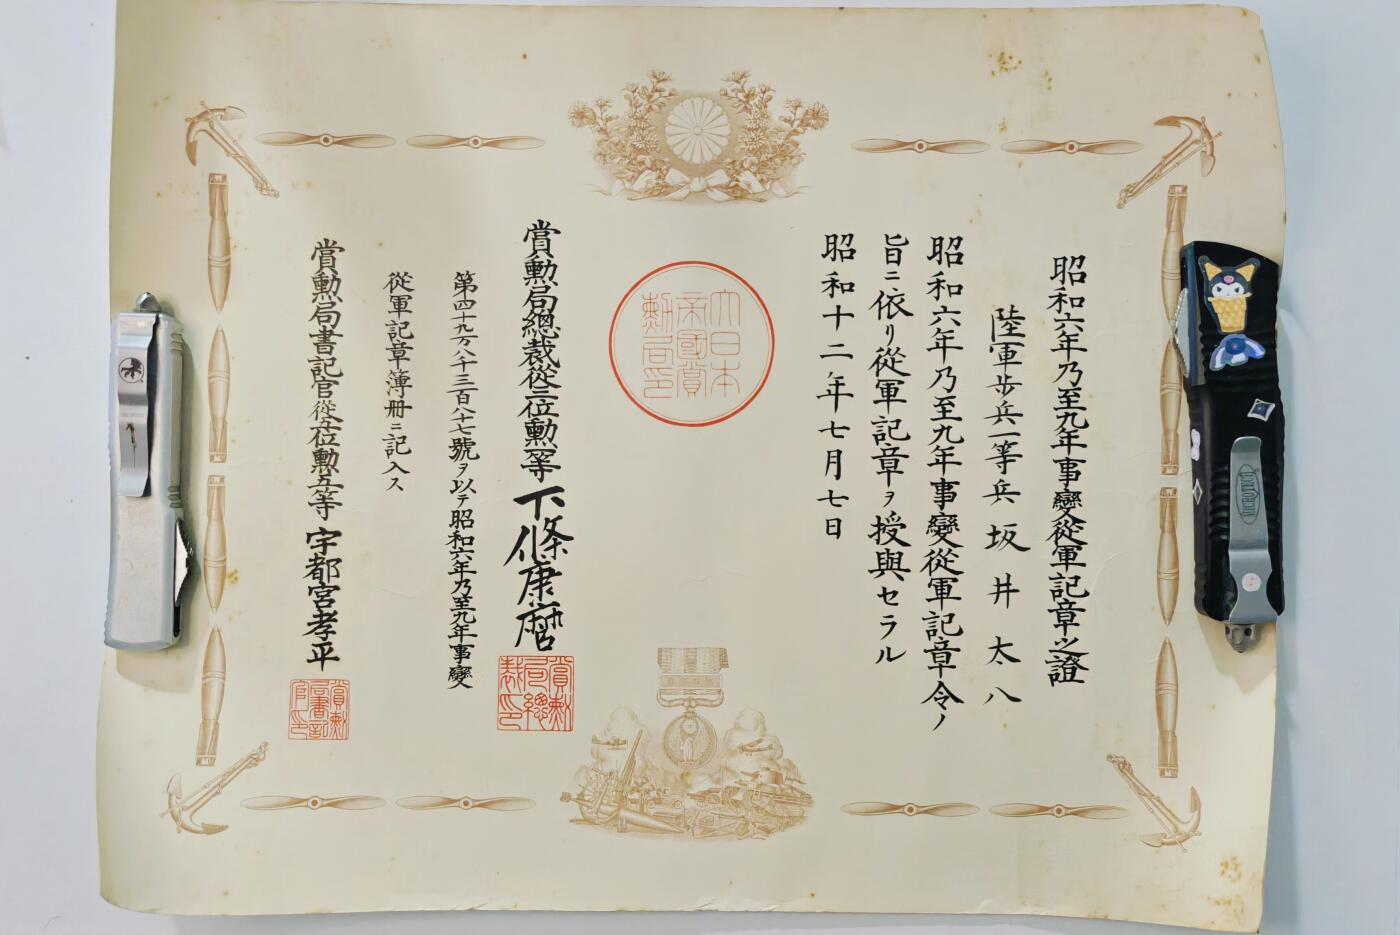 昭和六年乃至九年事變從軍記章之證
陸軍歩兵一等兵坂井太八
昭和六年乃至九年事變從軍記章令ノ
旨ニ依リ從軍記章ヲ授與セラル
昭和十二年七月七日
大日本
帝國賞
勲局印
賞勲局總裁從三位勲一等下條康麿
賞勲
局總
裁印
第四十九万八千三百八十七號ヲ以テ昭和六年乃至九年事變
從軍記章簿冊ニ記入ス
賞勲局書記官從五位勲五等宇都宮孝平
賞勲
局書記
官印